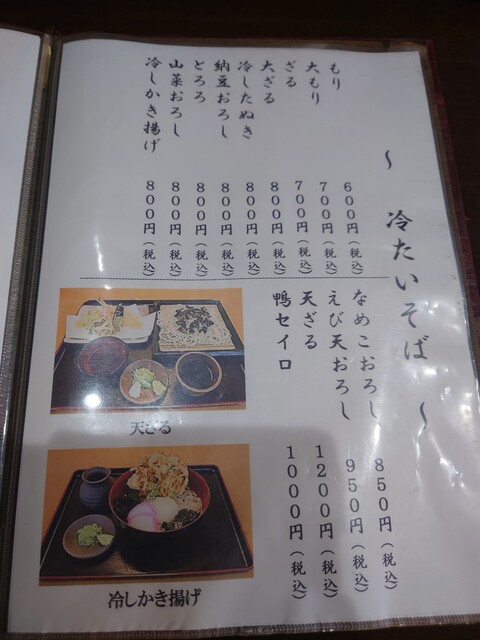 〜 冷たいそば 〜
もり 600円（税込）
大もり 700円（税込）
ざる 700円（税込）
大ざる 800円（税込）
冷したぬき 800円（税込）
納豆おろし 800円（税込）
とろろ 800円（税込）
山菜おろし 800円（税込）
冷しかき揚げ 800円（税込）
なめこおろし 850円（税込）
えび天おろし 950円（税込）
天ざる 1200円（税込）
鴨セイロ 1000円（税込）
天ざる
冷しかき揚げ